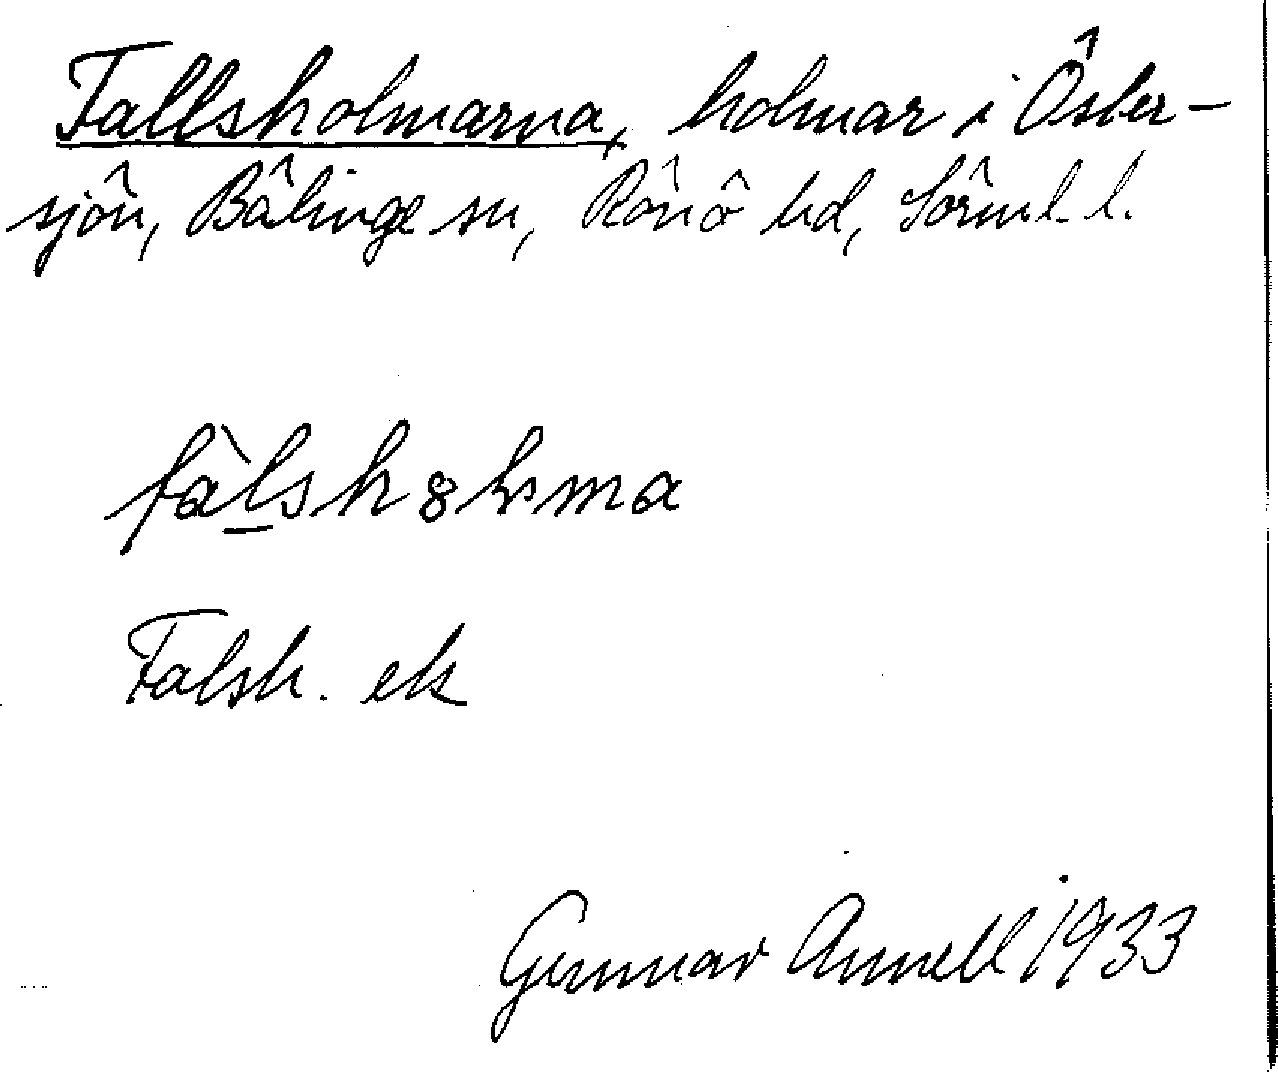 Fallsholmarna, holmar i Öster-
sjön, Bälinge sn, Rönö hd, Sörml. l.
Falsh. ek
Gunnar Annell 1933